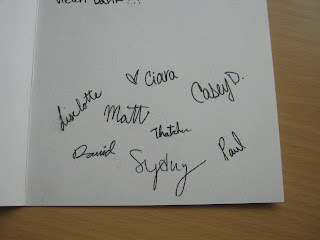 Vielen Dank!!!
♡ Ciara
Casey D.
Liselotte
Matt
Thatcher
David
Sydney
Paul